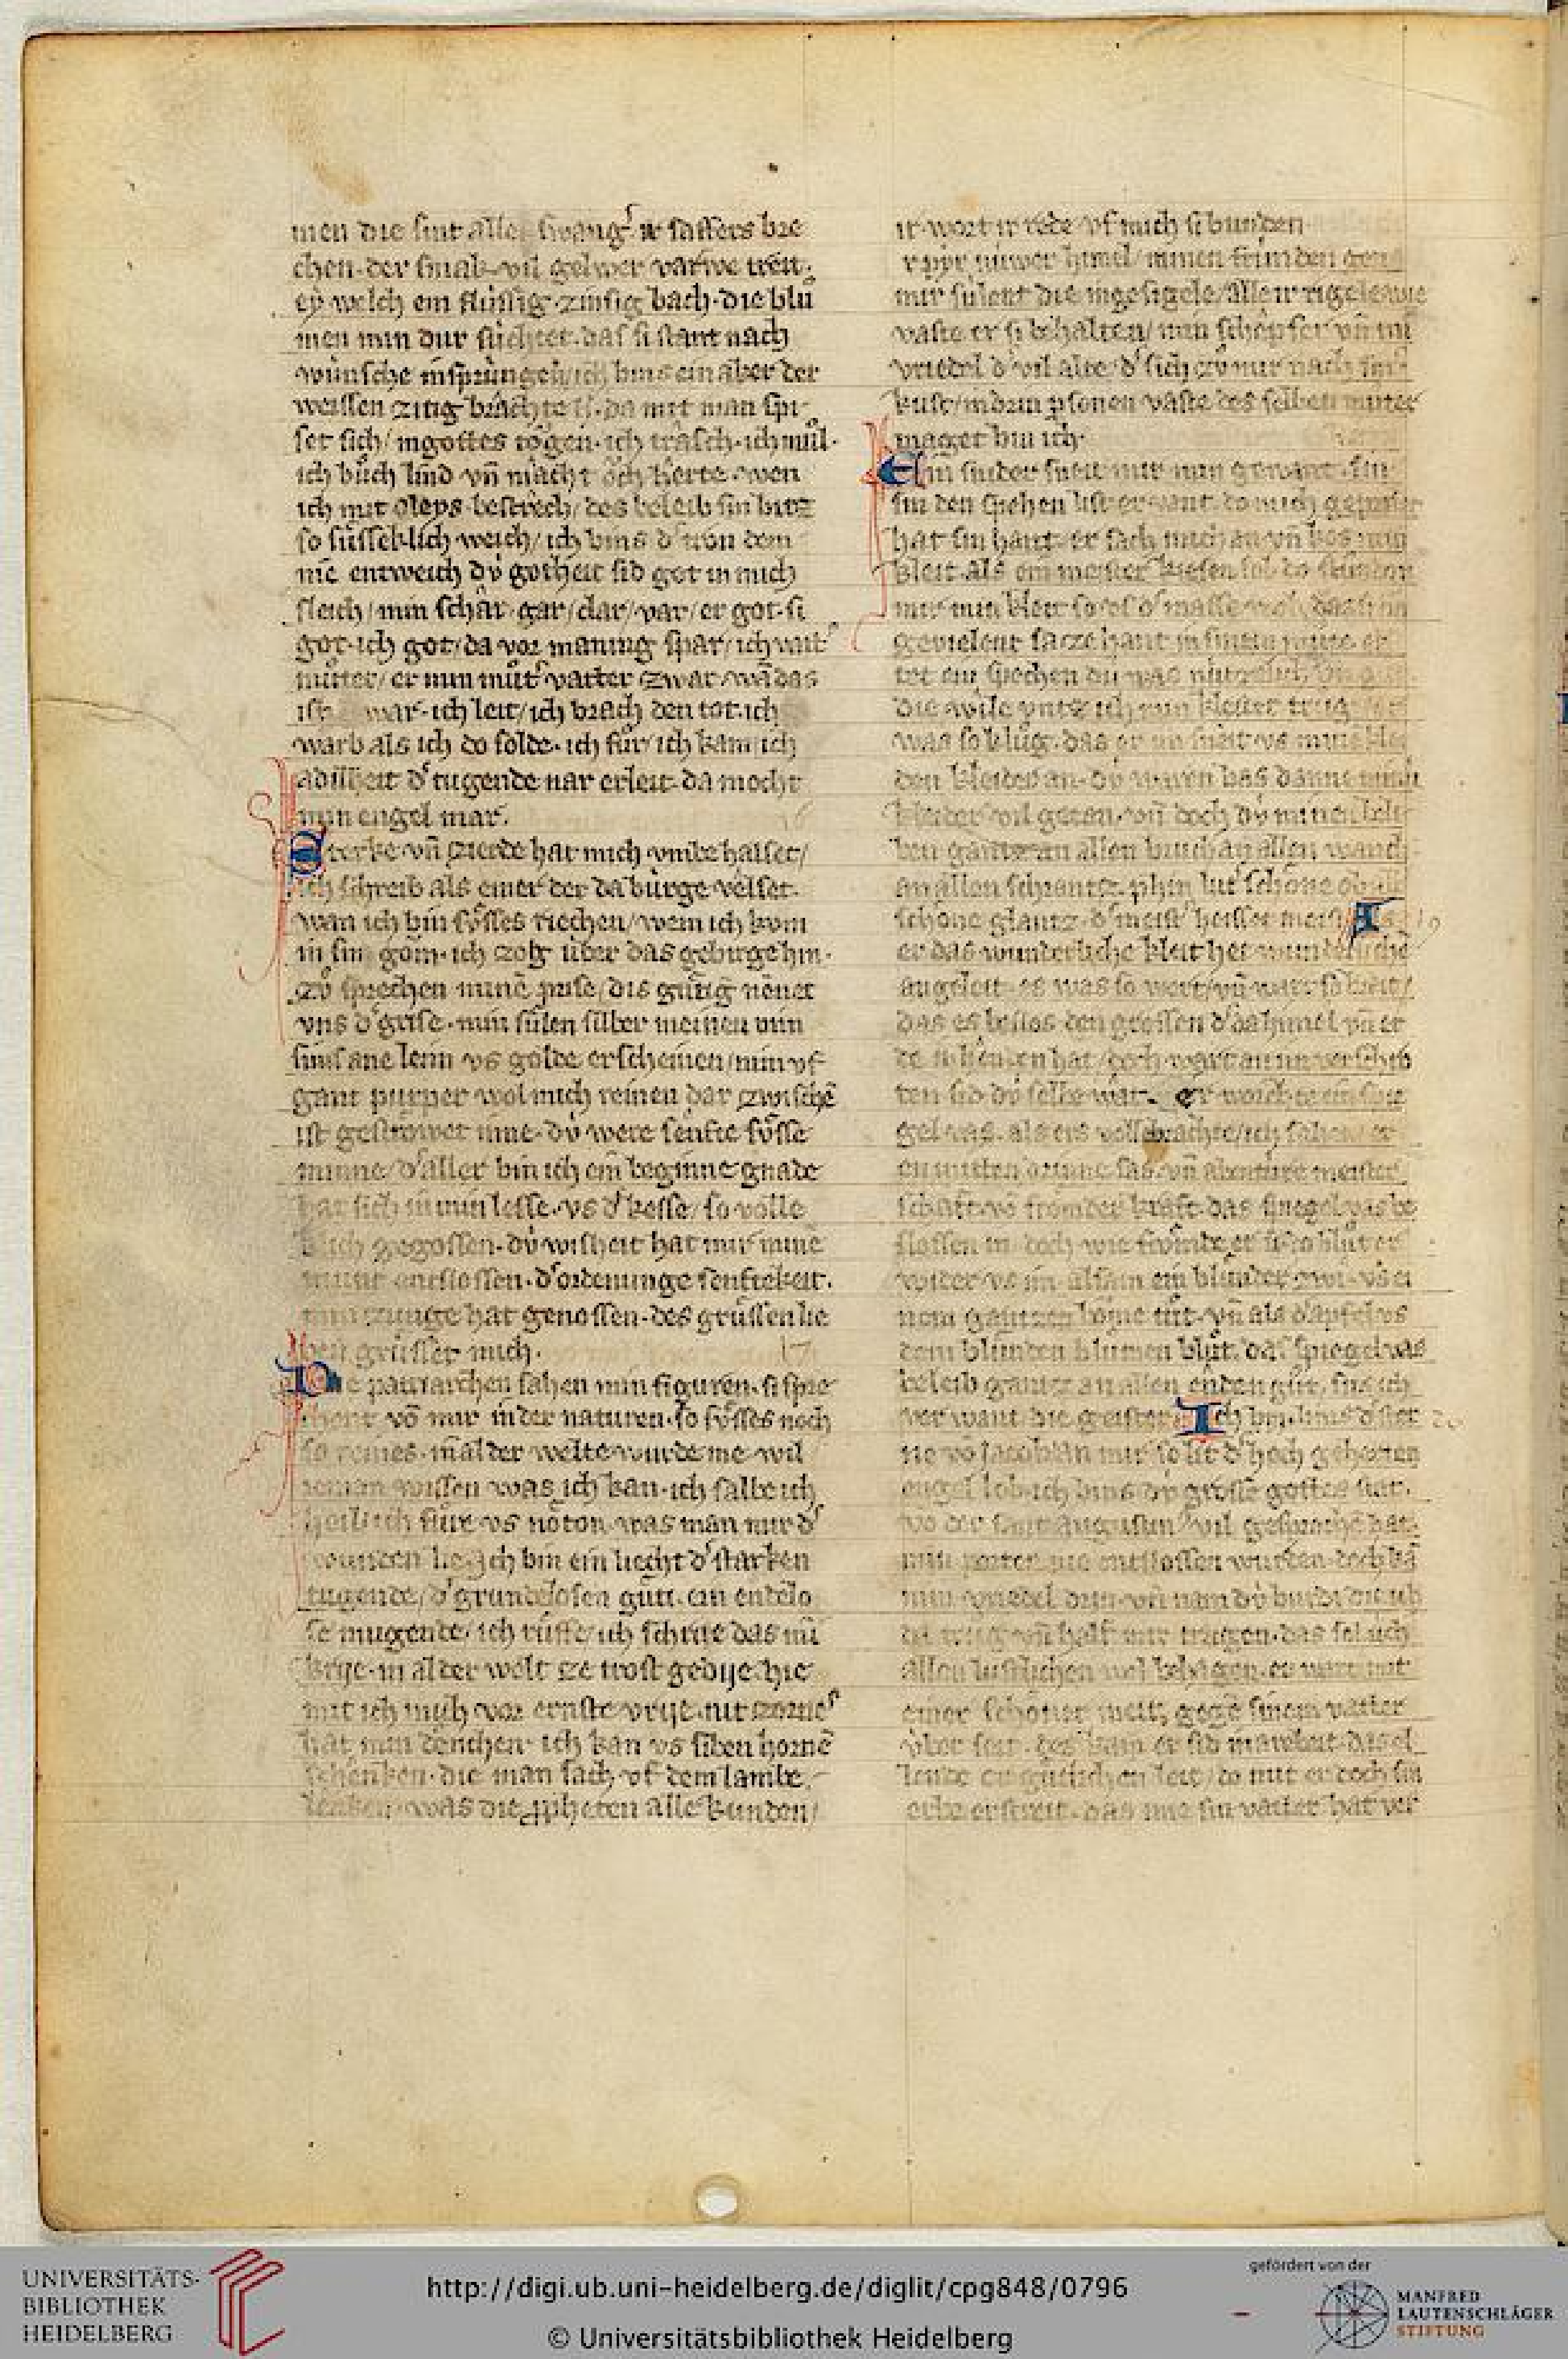 men die sint alle swang͛ ir saffers bre
chen·der smak·vil gelwer varwe tren·
ey welch ein flússig·zinsig bach·die blů
men min dur fúchtet·das si stant nach
wunsche in springen/ich bins ein aker der
weissen zitig brachte si·da mit man spi
set sich/in gottes tǒgen·ich trasch·ich můl·
ich bůch lind vn̄ macht ǒch herte·wen
ich mit oleys bestrech/des beleib sin bitz
so sússeklich weich/ich bins d͛ tron dem
nie entweich dv́ gotheit sid got in mich
sleich/min schar·gar/clar/var/er got·si
got·ich got/da vor maning spar/ich vat͛
můter/er min můt͛ vatter zwar/wā das
ist war·ich leit/ich brach den tot·ich
warb als ich do solde·ich fůr/ich kam ich
d͛ tugende nar erleit·da mocht
min engel mar·
Sterke·vn̄ zierde hat mich vmbe halset/
ich schreib als einer der da búrge velset·
wan ich bin sv́sses riechen/wem ich kom
in sin gǒm·ich zoh úber das gebirge hin·
zv̊ sprechen minē prise/dis gútig nēnet
vns d͛ grise·min súlen silber meinen min
sims ane lein vs golde erscheinen/min vf
gant purper wol mich reinen dar zwischē
ist gestrǒwet inne·dv́ were senfte sv́sse
minne/d͛ aller bin ich ein beginne gnade
hat sich in min lesse·vs d͛ kesse/so volle
klich gegossen·dv́ wisheit hat mir mine
munt entslossen·d͛ ordenunge senftekeit·
min zunge hat genossen·des grússen lie
ben grússet mich·
Die patriarchen sahen min figuren·si spre
chent vō mir in der naturen·so sv́sses noch
so reines·in al der welte wurde nie·wil
ieman wissen was ich kan·ich salbe ich
heil·ich fúre vs nǒten·was man mir d͛
wunden lie·Ich bin ein liecht d͛ starken
tugende/d͛ grundelosen gútt·ein endelo
se mugende/ich rúffe/ich schrie das mī
krije·in al der welt ze trost gedije·hie
mit ich mich vor ernste vrije·mit zorne͛
hat min denchen·ich kan vs siben hornē
schenken·die man sach vf dem lambe
lenken·was die ꝓpheten alle kunden/
ir wort ir rede vf mich si bunden
mir súlent die ingesigele/alle ir rigele·wie
vaste er si behalten/min schepfer vn̄ mī
vriedel d͛ vil alte/d͛ sich zv̊ mir nach
kust/in drin ꝑsonen vaste des selben můter
maget bin ich·
Ein snider sneit mir min gewant·sin
sin den spehen list ervant·do mich
hat sin hant·er sach mich an vn̄ kos min
kleit·als ein meister kiesen sol do stůnden
mir min kleit so
gevielent sa ze hant in sinem můte·er
die wile vntz ich min kleider trůg
was so klůg·das er
den kleider an·dv́ waren bas danne mine
kleider vil getan·vn̄ doch dv́ minen
ben gantz an allen bruch an allen wanch
an allen schrantz·
schone glantz·d͛ meist͛ heisset meist͛ Als
er das wunderliche kleit het wunderliche
angeleit·es was so wert/vn̄ was so breit/
das es beslos den grossen d͛ da himel vn̄ er
de
ten sid dv́ selbe war· er worcht ein spie
gel was·als ers vollebrachte/ich sahe wa er
en mitten drinne sas·vn̄ abentúre meister
schaft·vō frǒmder kraft·das spiegel was be
slossen in·doch wie frǒmde
wider vs im·alsam ein blůnder zwi·vs ei
nem gantzen bǒme tůt·vn̄ als d͛ apfel vs
dem blůnden blůmen blůt·das spiegel was
beleib gantz an allen enden gůt·sus ich
ver want die geister Ich bin·hins d͛ ster
ne vō Jacob/an mir so lit d͛ hoch gehorten
engel lob·ich bins dv́ grosse gottes stat·
vō der sant augustin vil gesprochē hat·
min porten nie entslossen wurden·doch kā
min vriedel drin·vn̄ nam dv́ burdi die ich
da trůg·vn̄ half mir tragen·das sol úch
allen lusklichen wol behagen·er wart mit
einer schǒnen wett gegē sinem vatter
úber seit·des kam er sid in arebeit·da el
lende er gútlichen leit/do mit er doch sin
erbe erstreit·das nie sin vatter hat ver
UNIVERSITÄTS-
BIBLIOTHEK
HEIDELBERG
http://digi.ub.uni-heidelberg.de/diglit/cpg848/0796
© Universitätsbibliothek Heidelberg
gefördert von der
MANFRED
LAUTENSCHLÄGER
STIFTUNG